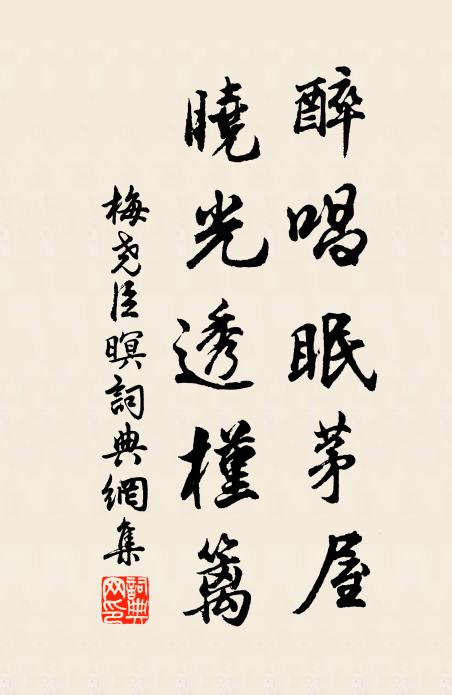 醉唱眠茅屋
曉光透槿籬
梅堯臣暝詞典網集
詞典網印